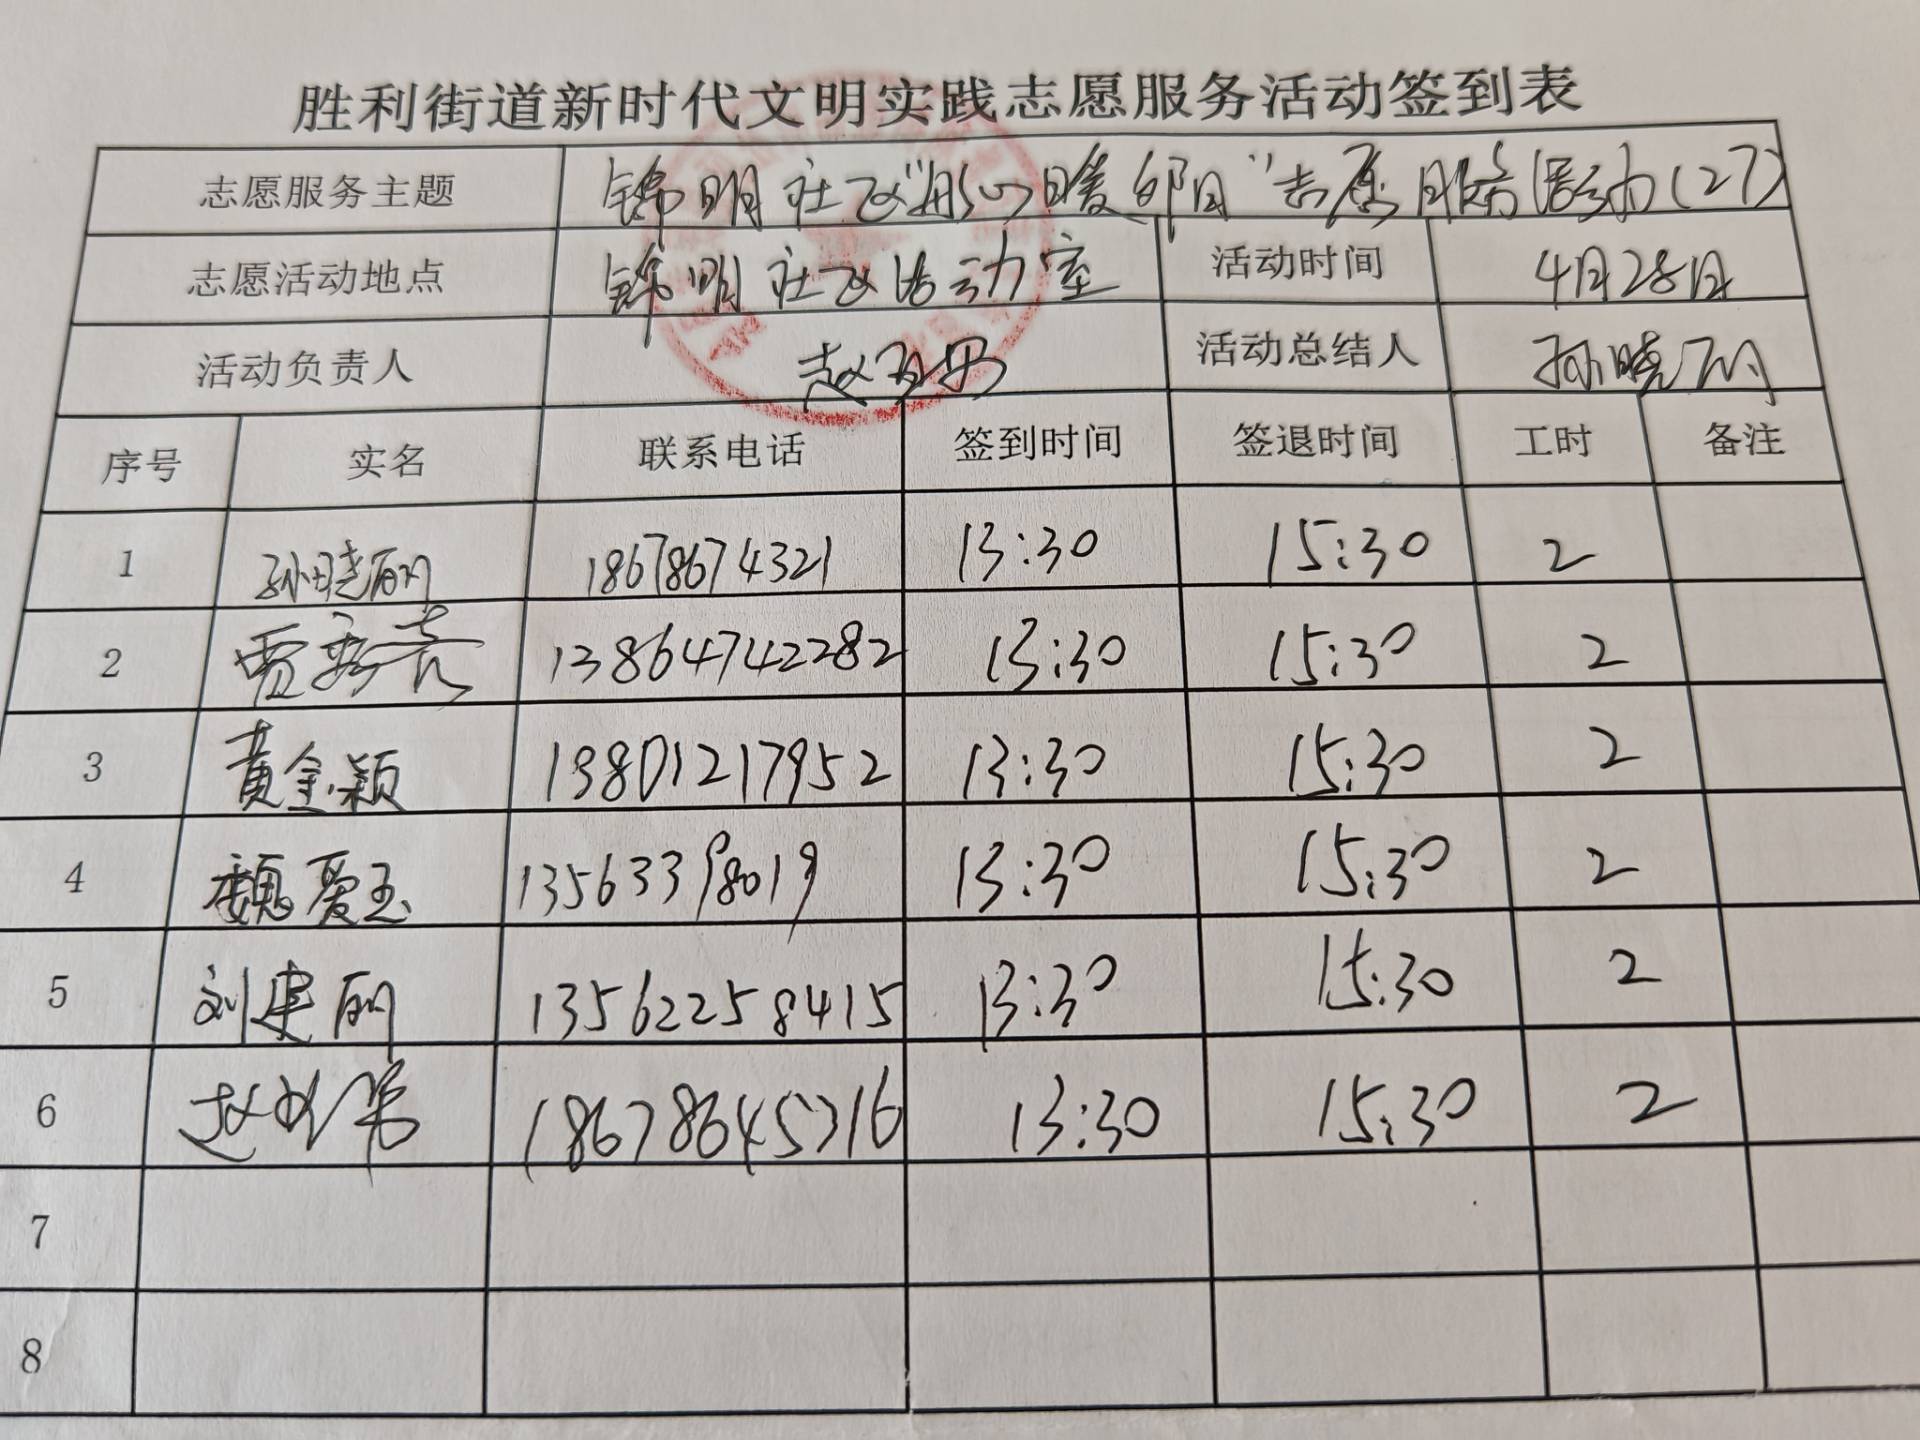 胜利街道新时代文明实践志愿服务活动签到表
志愿服务主题 锦明社区“彤心暖邻月”志愿服务活动(27)
志愿活动地点 锦明社区活动室 活动时间 4月28日
活动负责人 赵 活动总结人 孙晓丽
序号 实名 联系电话 签到时间 签退时间 工时 备注
1 孙晓丽 18678674321 13:30 15:30 2
2 贾秀亮 13864742282 13:30 15:30 2
3 黄金颖 13801217952 13:30 15:30 2
4 魏爱玉 13563398019 13:30 15:30 2
5 刘建丽 13562258415 13:30 15:30 2
6 赵 18678645316 13:30 15:30 2
7
8